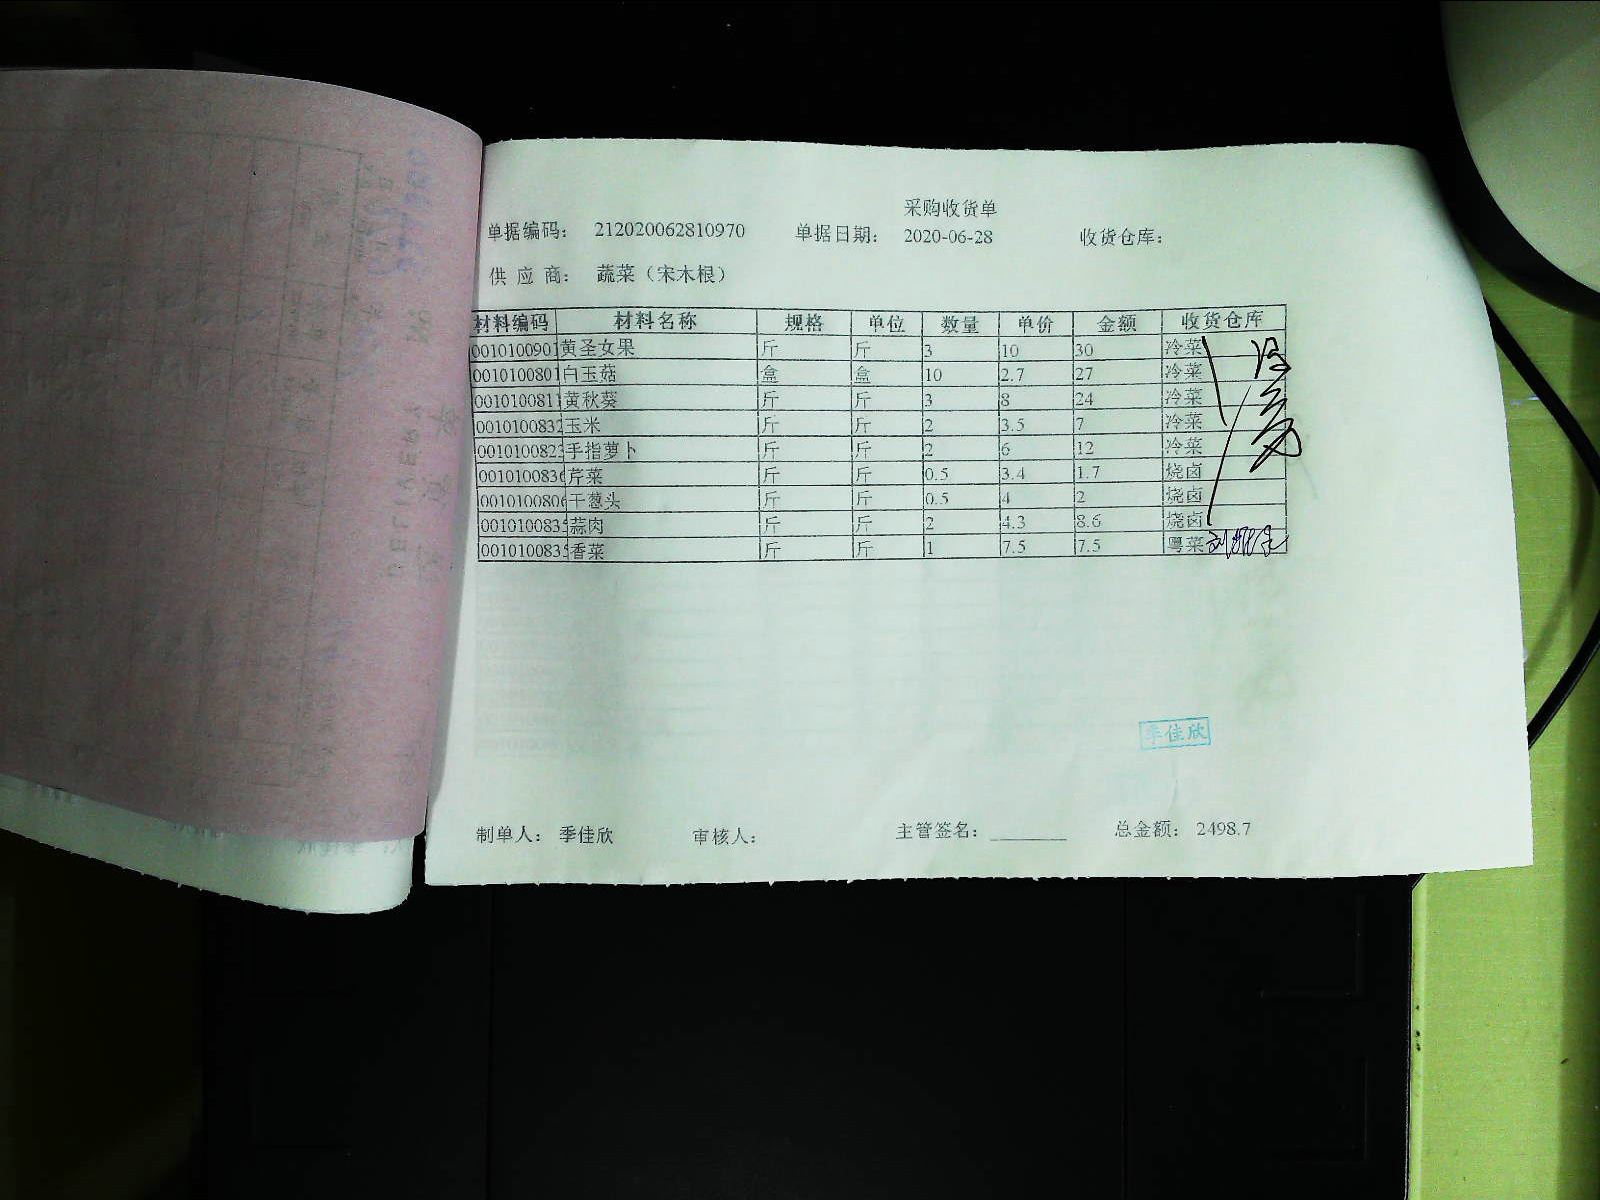 采购收货单
单据编码： 212020062810970 单据日期： 2020-06-28 收货仓库：
供 应 商： 蔬菜（宋木根）
材料编码 材料名称 规格 单位 数量 单价 金额 收货仓库
0010100901 黄圣女果 斤 斤 3 10 30 冷菜
0010100801 白玉菇 盒 盒 10 2.7 27 冷菜
0010100811 黄秋葵 斤 斤 3 8 24 冷菜
0010100832 玉米 斤 斤 2 3.5 7 冷菜
0010100823 手指萝卜 斤 斤 2 6 12 冷菜
0010100836 芹菜 斤 斤 0.5 3.4 1.7 烧卤
0010100806 干葱头 斤 斤 0.5 4 2 烧卤
0010100835 蒜肉 斤 斤 2 4.3 8.6 烧卤
0010100835 香菜 斤 斤 1 7.5 7.5 粤菜
季佳欣
制单人： 季佳欣 审核人： 主管签名：_______ 总金额： 2498.7